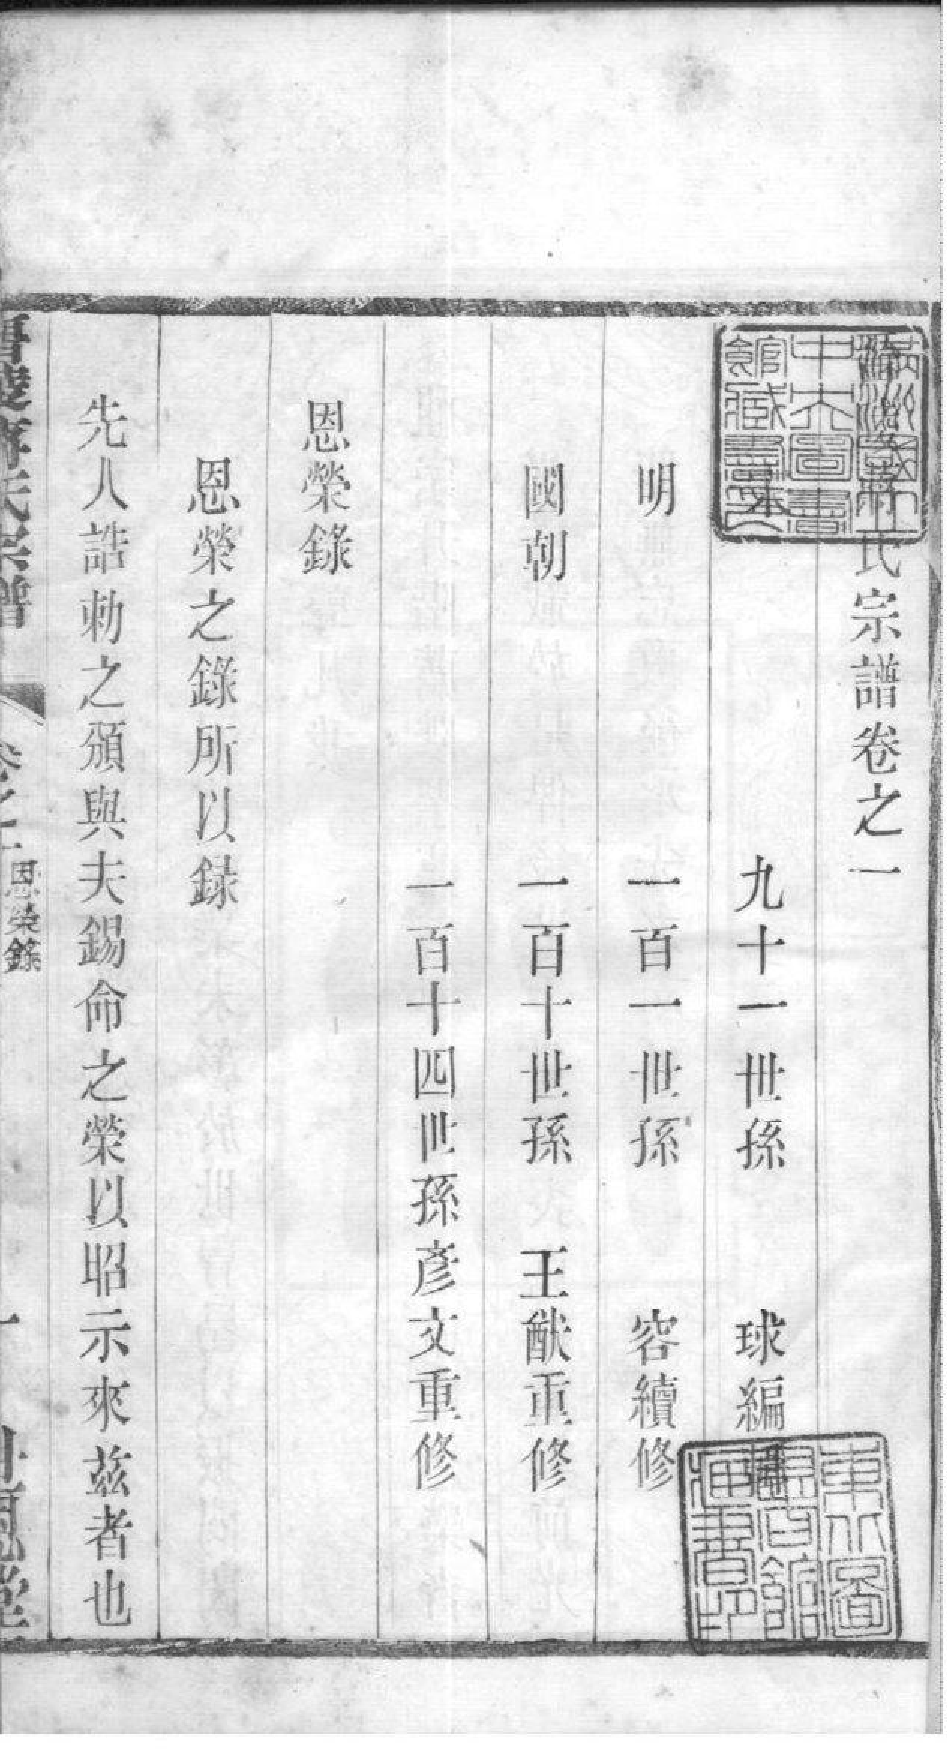 氏宗譜卷之一
九十一世孫 球編
明 一百一世孫 容續修
國朝 一百十世孫 王猷重修
一百十四世孫彥文重修
恩榮錄
恩榮之錄所以録
先人誥勅之頒與夫錫命之榮以昭示來茲者也
氏宗譜
卷之一
恩榮錄
一
東北圖書館